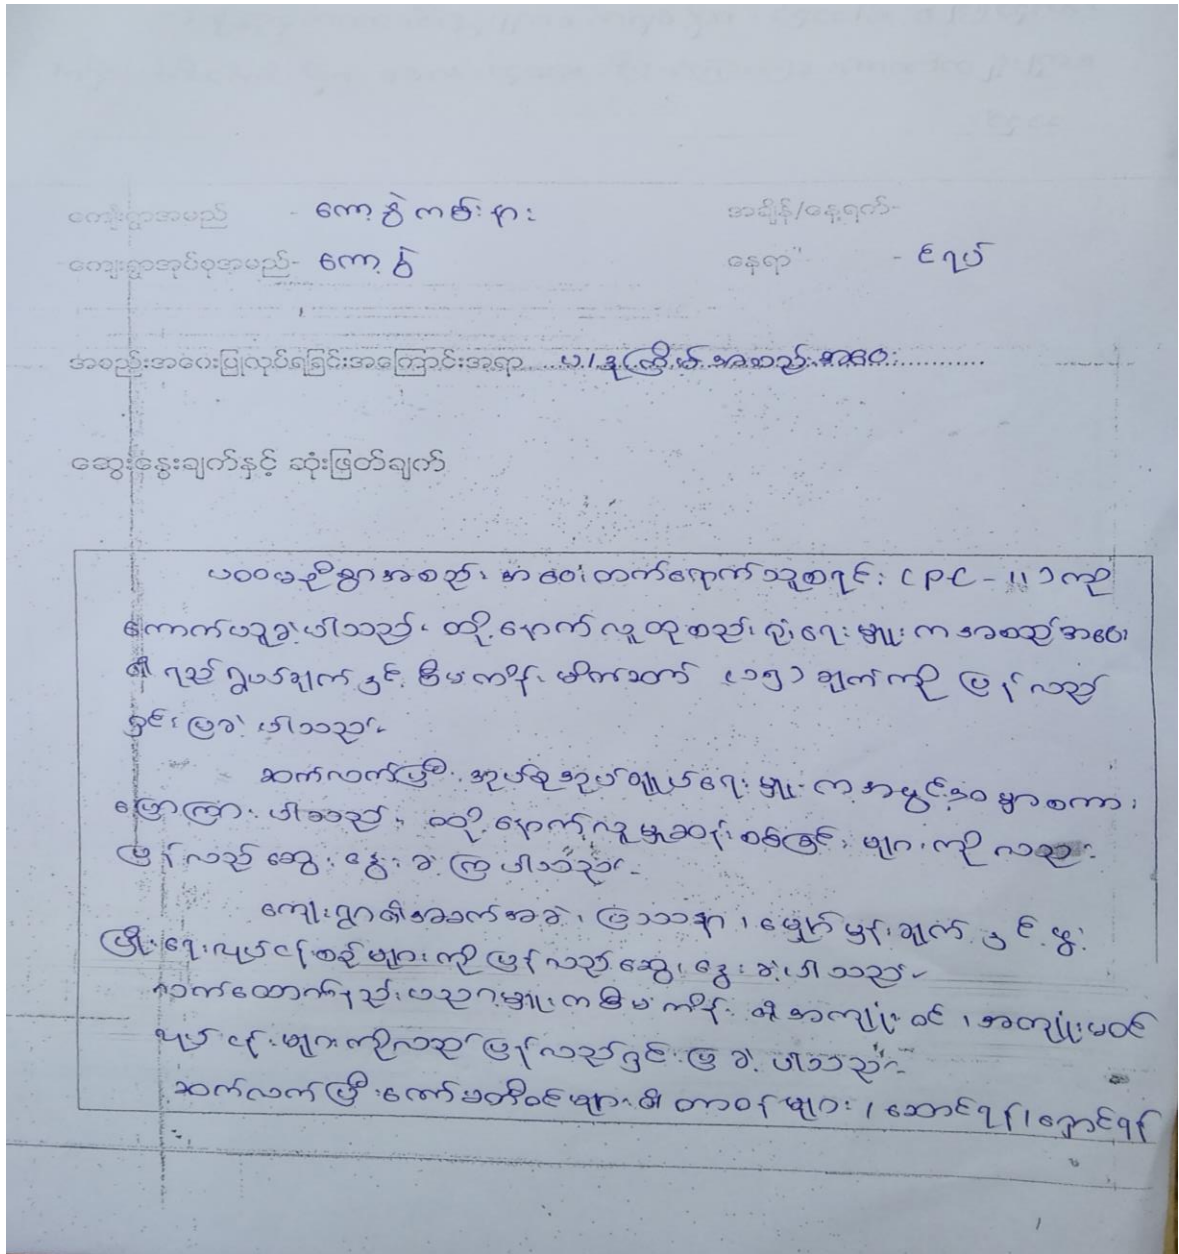 ကျေးရွာအမည် - ကော့နွဲကမ်းနား အချိန်/နေ့ရက်-
ကျေးရွာအုပ်စုအမည်- ကော့နွဲ နေရာ - ငရပ်
အစည်းအဝေးပြုလုပ်ရခြင်းအကြောင်းအရာ ပ/ဒုကြိမ် အစည်းအဝေး
ဆွေးနွေးချက်နှင့် ဆုံးဖြတ်ချက်
ပထမဦးစွာအစည်းအဝေးတက်ရောက်သူစာရင်း (PC-11) ကို
ကောက်ယူခဲ့ပါသည်။ ထို့နောက်လူထုစည်းရုံးရေးမှူးကအစည်းအဝေး
၏ ရည်ရွယ်ချက်နှင့် စီမံကိန်းမိတ်ဆက် (၁၅) ချက်ကို ပြန်လည်
ရှင်းပြခဲ့ပါသည်။
ဆက်လက်ပြီး အုပ်စုအုပ်ချုပ်ရေးမှူးကအဖွင့်အမှာစကား
ပြောကြားပါသည်။ ထို့နောက်လူမှုဆန်းစစ်ခြင်းများကိုလည်း
ပြန်လည်ဆွေးနွေးခဲ့ကြပါသည်။
ကျေးရွာ၏အခက်အခဲ၊ ပြဿနာ၊ မျှော်မှန်းချက်နှင့်ဖွံ့
ဖြိုးရေးလုပ်ငန်းစဉ်များကိုပြန်လည်ဆွေးနွေးခဲ့ပါသည်။
လက်ထောက်နည်းပညာမှူးကစီမံကိန်း၏အကျုံးဝင်၊အကျုံးမဝင်
လုပ်ငန်းများကိုလည်းပြန်လည်ရှင်းပြခဲ့ပါသည်။
ဆက်လက်ပြီးကော်မတီဝင်များ၏တာဝန်များ၊ဆောင်ရန်၊ရှောင်ရန်